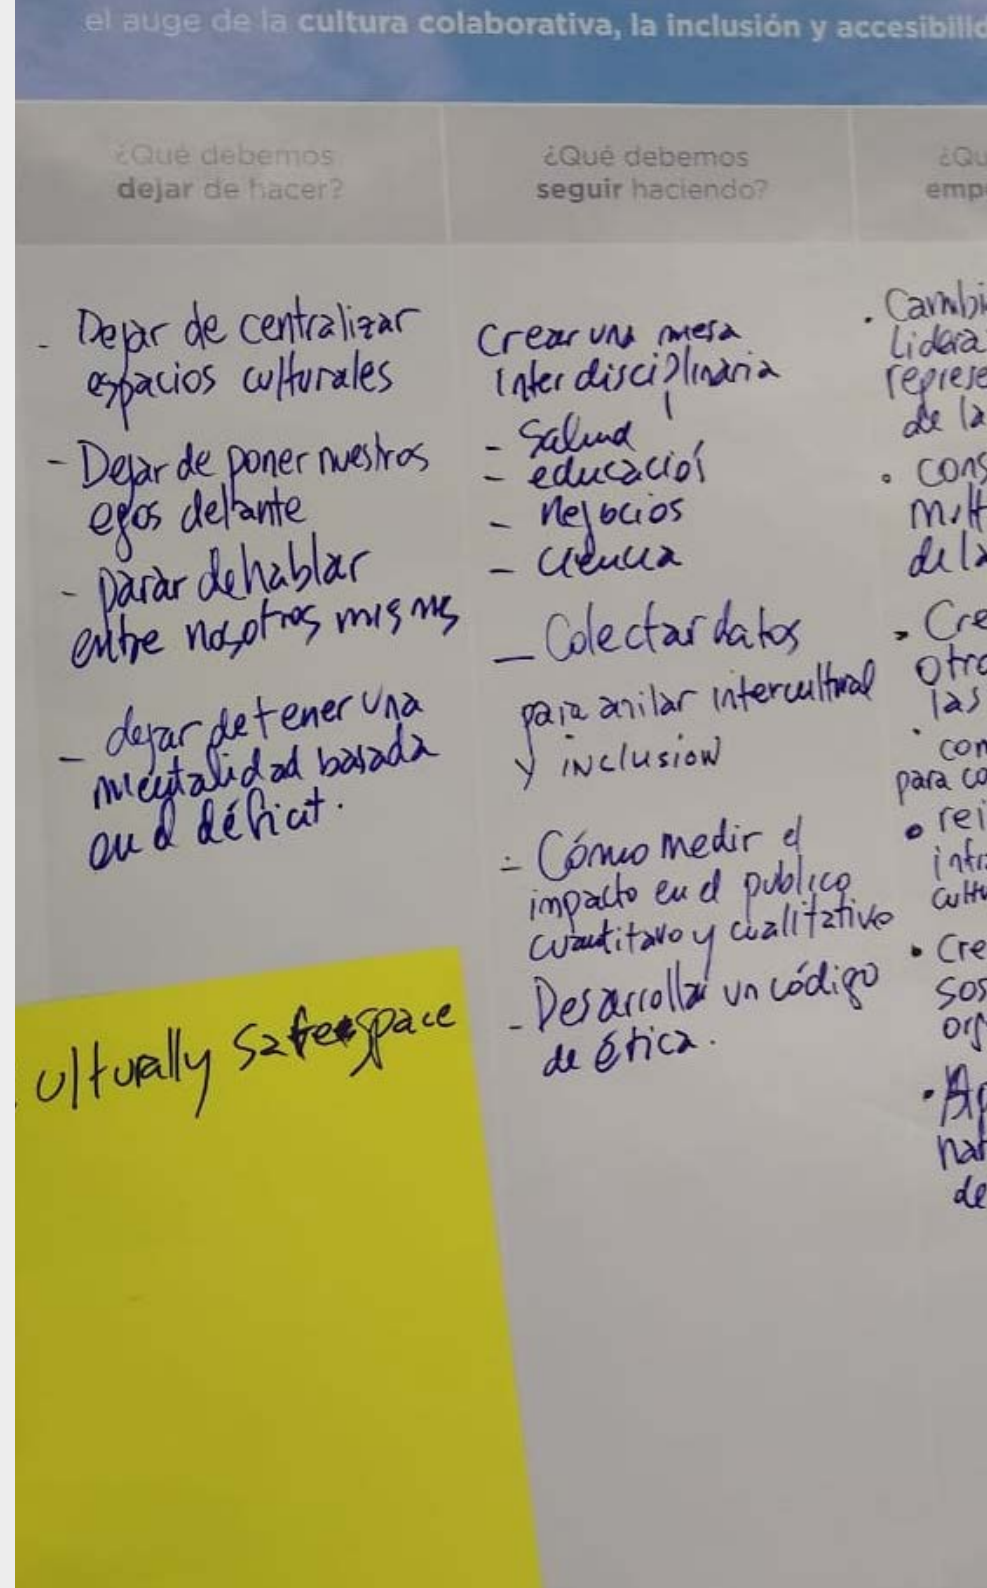 el auge de la cultura colaborativa, la inclusión y accesibilid
¿Qué debemos
dejar de hacer?
- Dejar de centralizar
espacios culturales
- Dejar de poner nuestros
egos delante
- parar de hablar
entre nosotros mismos
- dejar de tener una
mentalidad basada
en el déficit.
Culturally safe space
¿Qué debemos
seguir haciendo?
Crear una mesa
Interdisciplinaria
- Salud
- educación
- negocios
- Ciencia
- Colectar datos
para intercultural
y inclusion
- Cómo medir el
impacto en el publico
cuantitavo y cualitativo
- Desarrollar un código
de ética.
¿Qu
emp
. Cambi
Lidera
represe
de la
. cons
mult
de la
. Cre
otro
las
. con
para co
. rei
infra
cultu
. Cre
sos
org
. Ap
nar
de